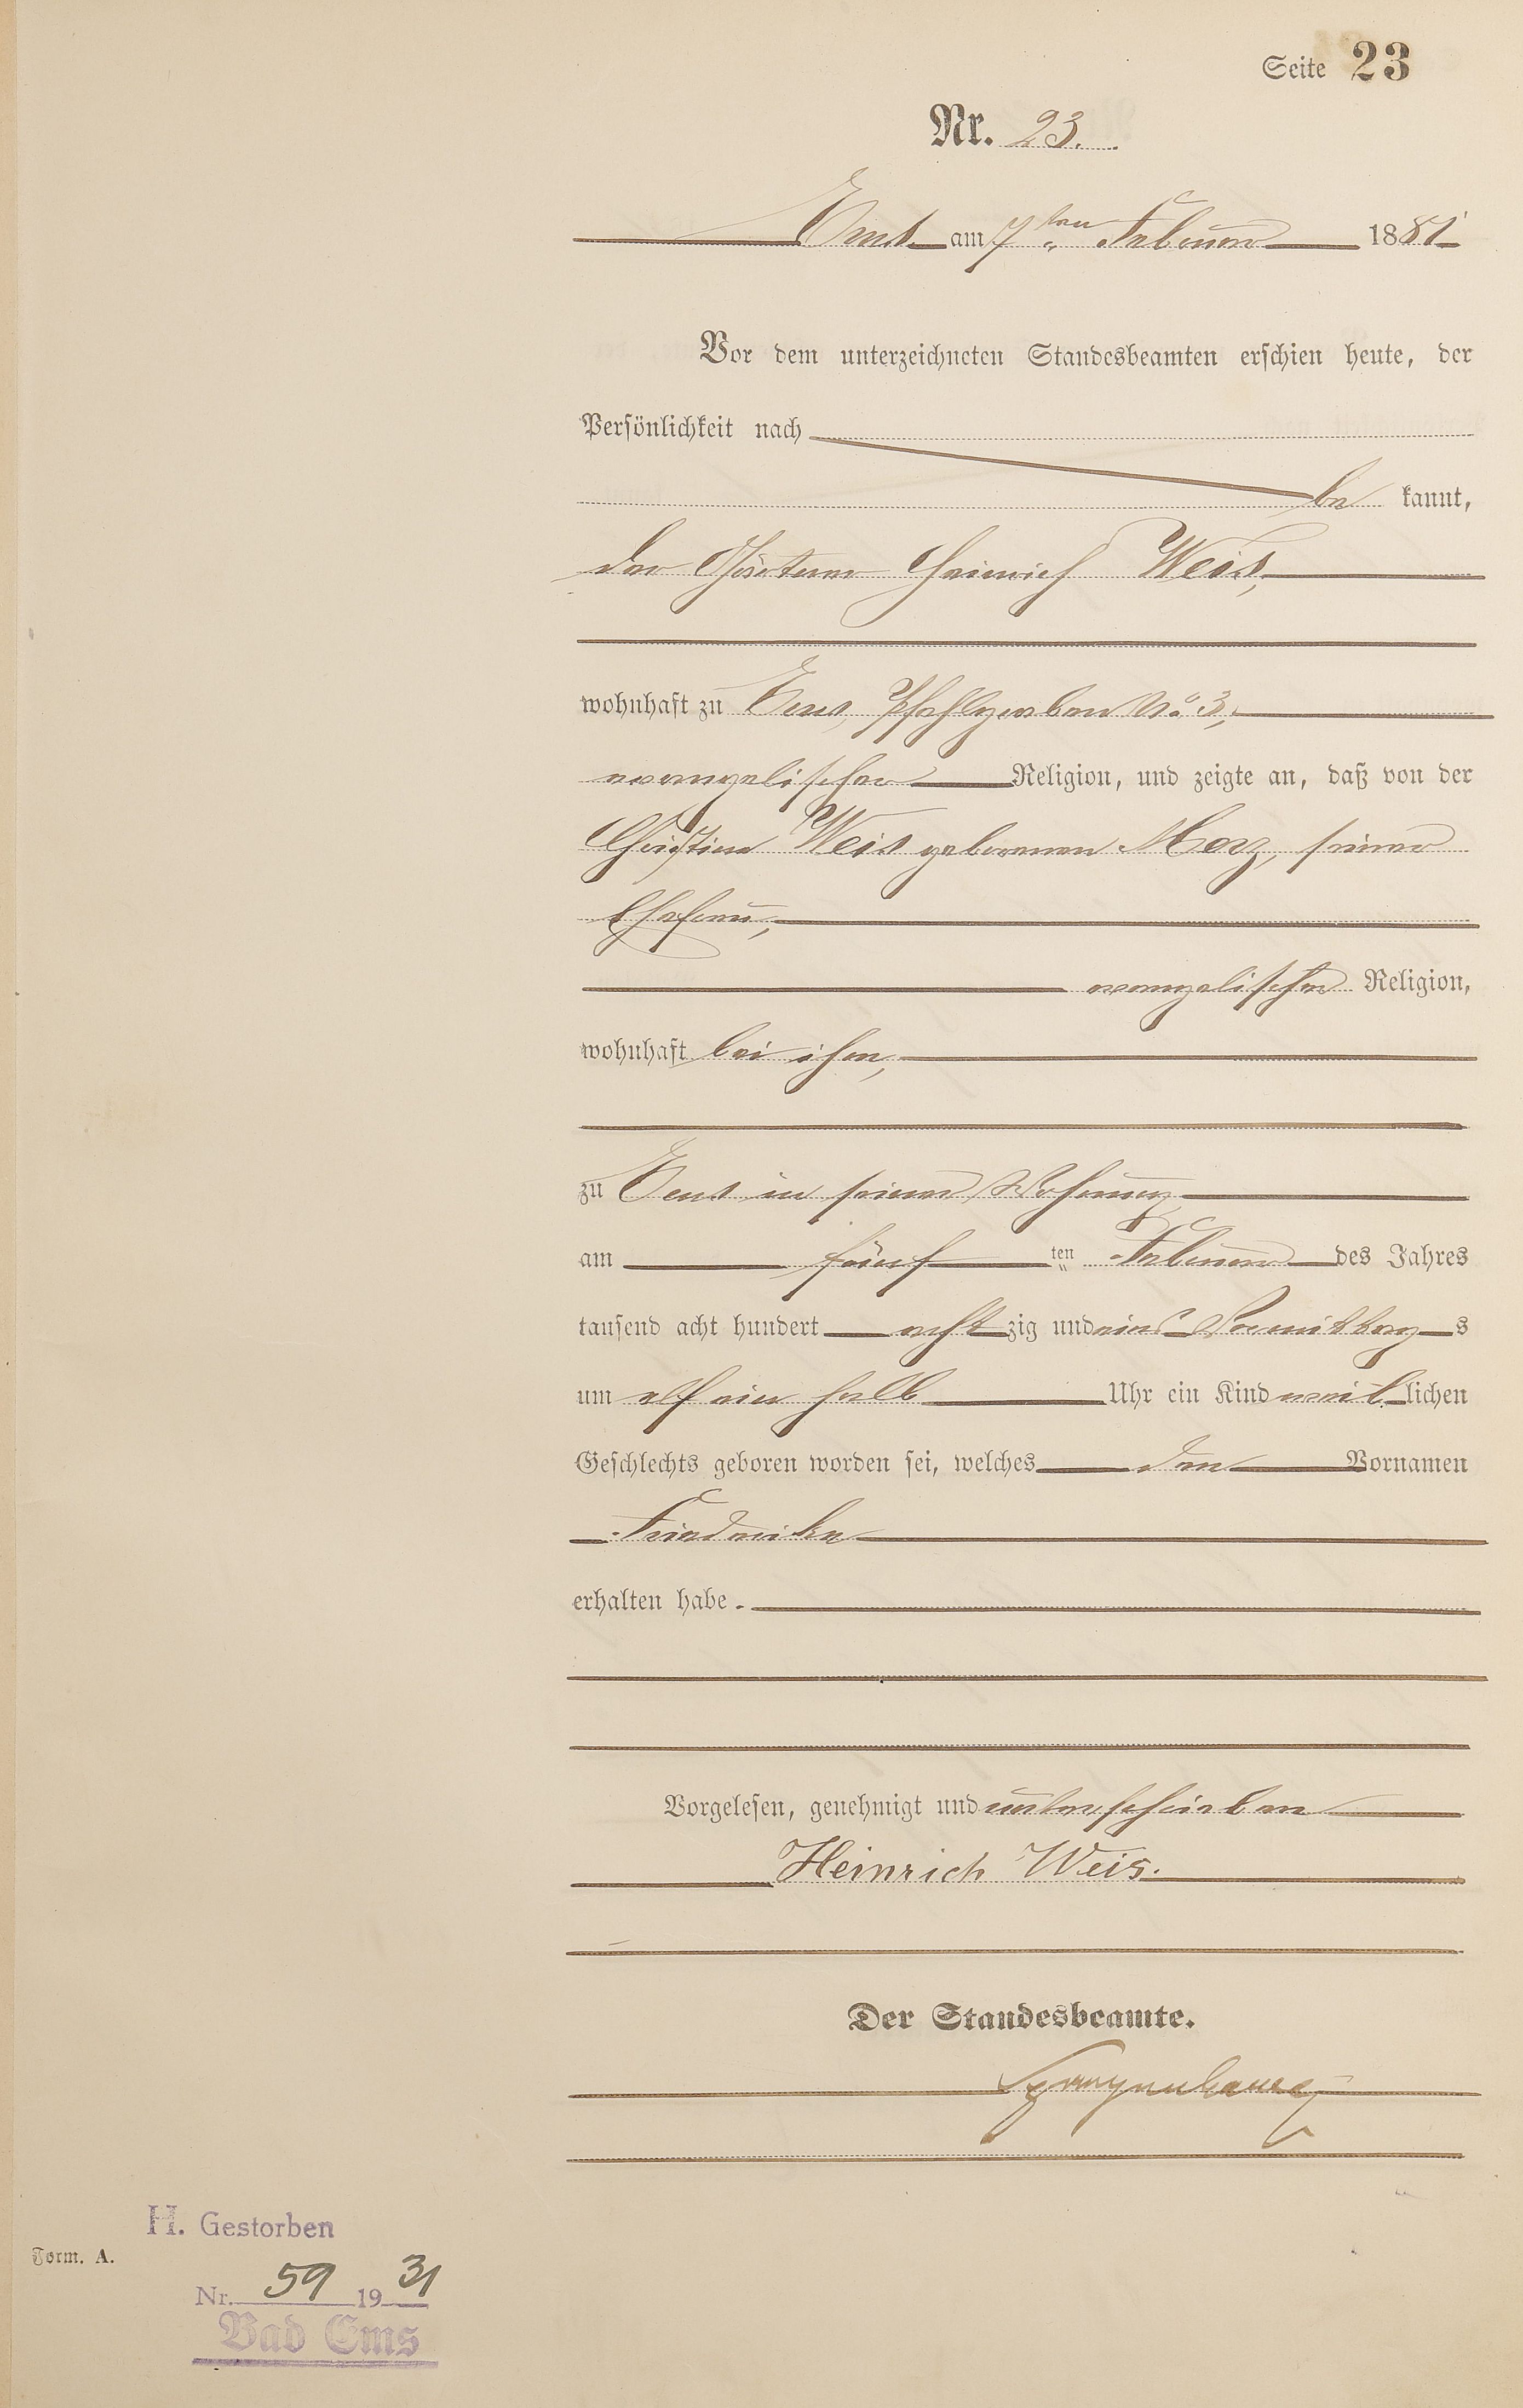 Seite 23
Nr. 23.
Ems am 7ten Februar 1881
Vor dem unterzeichneten Standesbeamten erschien heute, der
Persönlichkeit nach
be kannt,
der Heinrich Weis,
wohnhaft zu Ems, Pfahlgraben No 3,
evangelischer Religion, und zeigte an, daß von der
Christine Weis geborenen Merz, seiner
Ehefrau,
evangelischer Religion,
wohnhaft bei ihm,
zu Ems in seiner Wohnung
am fünf ten Februar des Jahres
tausend acht hundert acht zig und eins Vormittag s
um elf ein halb Uhr ein Kind weib lichen
Geschlechts geboren worden sei, welches den Vornamen
Friedrike
erhalten habe.
Vorgelesen, genehmigt und unterschrieben
Heinrich Weis.
Der Standesbeamte.
Spangenberg
H. Gestorben
Form. A.
Nr. 59 1931
Bad Ems